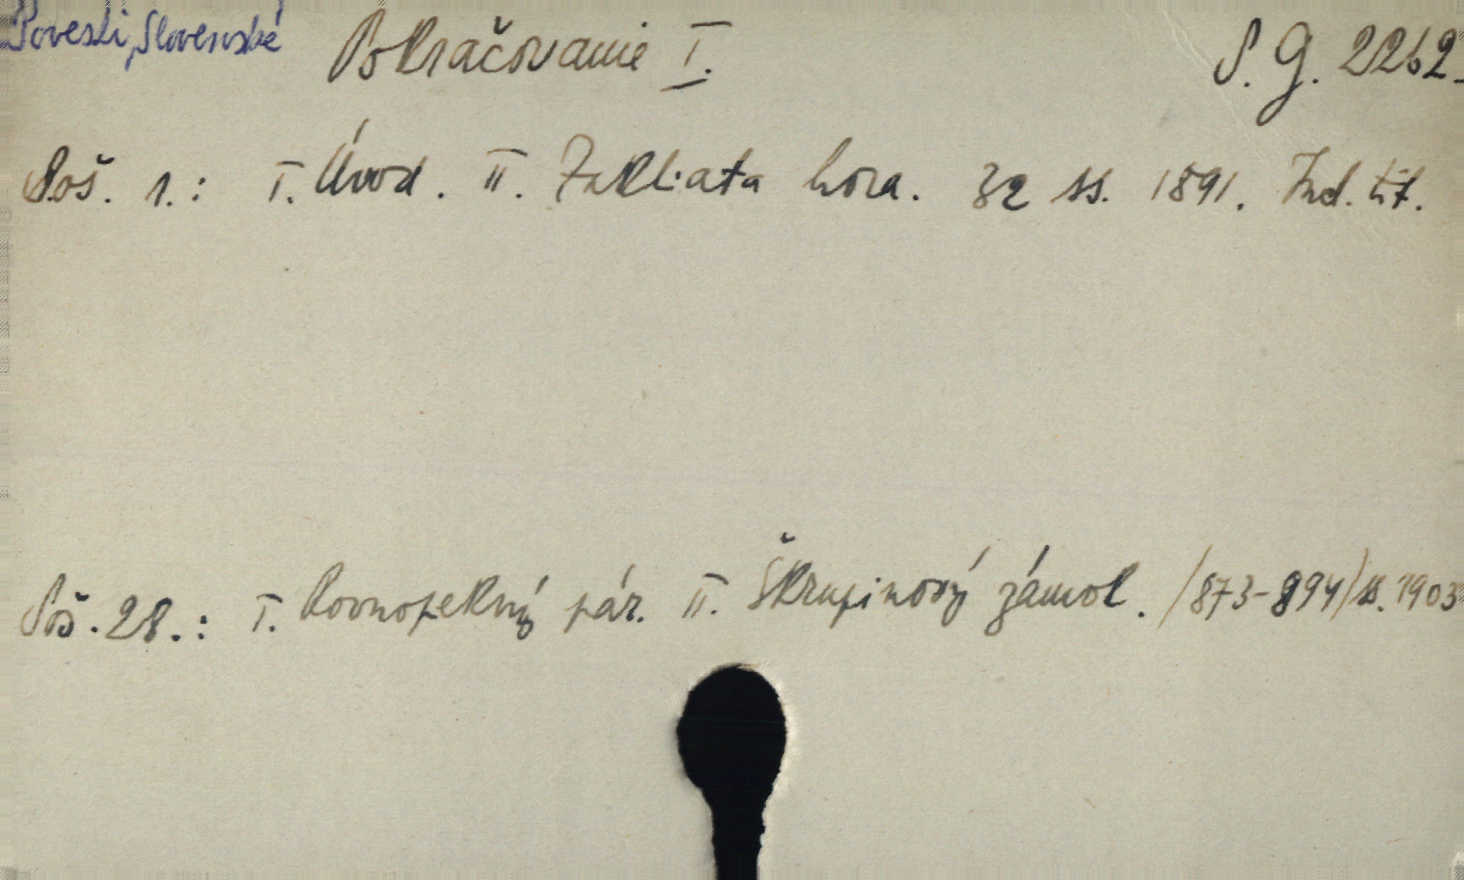 Povesti, Slovenské Pokračovanie I. S. G. 2262.
Soš. 1.: I. Úvod. II. Zakliata hora. 32 ss. 1891. Ind. tit.
Soš. 28.: I. Rovnopekný pár. II. Škrupinový zámok. /873-894/ ss. 1903